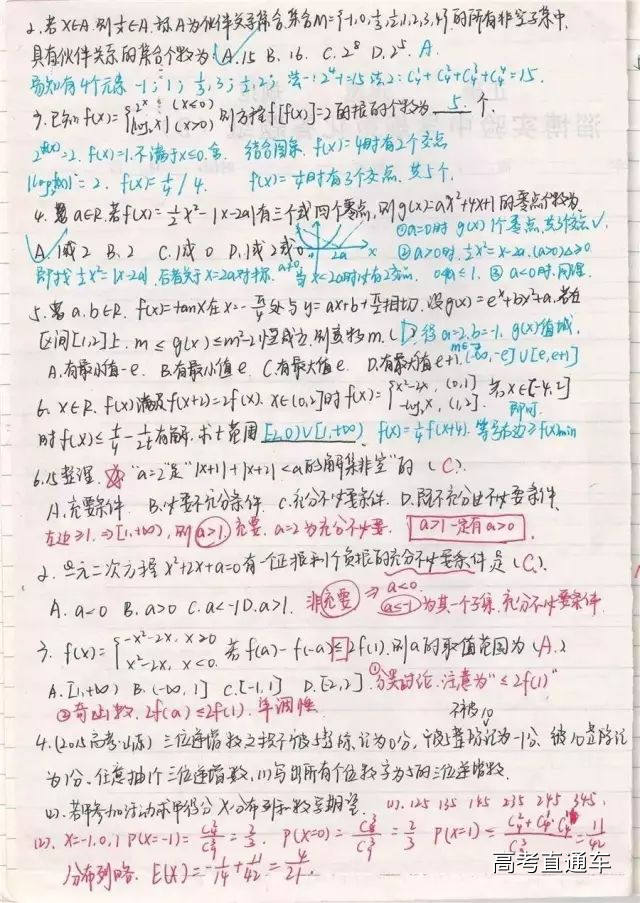 2.若x∈A.则1/x∈A.称A为伙伴关系集合.集合M={-1,0,1/3,1/2,1,2,3,4}的所有非空子集中,
具有伙伴关系的集合个数为(A.15 B.16. C.2^8 D.2^5. A.
易知有4个元素 -1; 1; 1/3,3; 1/2,2; 法一:2^4-1=15 法2: C_4^1+C_4^2+C_4^3+C_4^4=15.
3.已知f(x)={2^x (x≤0) |log_2x| (x>0) 则方程f[f(x)]=2的根的个数为 5. 个.
2^{f(x)}=2. f(x)=1.不满于x≤0.舍. 结合图象. f(x)=4时有2个交点
|log_2f(x)|=2. f(x)=1/4 / 4. f(x)=1/4时有3个交点. 共5个.
4. a∈R.若f(x)=1/2x²-|x-2a|有三个或四个零点,则g(x)=ax²+4x+1的零点个数为
①a=0时 g(x) 1个零点,
A.1或2 B.2 C.1或0 D.1或2或0
0 2a x
②a>0时.1/2x²=x-2a.(a>0)△≥0.
即找1/2x²=|x-2a| 后者关于x=2a对称.
③a<0时.同理.
5. a.b∈R. f(x)=tanx在x=-π/4处与y=ax+b+π/2相切.设g(x)=e^x+bx²+a.若在
区间[1,2]上. m≤g(x)≤m²-2恒成立.则实数m.(D.
得a=2.b=-1. g(x)值域.
A.有最小值-e. B.有最小值e. C.有最大值e. D.有最大值e+1.
(-∞,-e]∪[e,e+1]
6. x∈R. f(x)满足f(x+2)=2f(x). x∈(0,2]时f(x)={x²-2x, (0,1) -log_2x, [1,2]. 若x∈[-4,2]
即可.
时f(x)≤t/4-1/2t有解.求t范围 [-2,0)∪[1,+∞) f(x)=1/4f(x+4). 等于右边≥f(x)min
6.15整理. “a=2”是“|x+1|+|x+2|<a的解集非空”的(C).
A.充要条件. B.必要不充分条件. C.充分不必要条件. D.既不充分也不必要条件.
左边≥1. ⇒[1,+∞), 则a>1充要. a=2为充分不必要. a>1一定有a>0.
2. 一元二次方程x²+2x+a=0有一个正根和1个负根的充分不必要条件是(C).
A. a<0 B. a>0 C. a<-1 D. a>1. 非充要 ⇒ a<0.
a<-1为其一个子集.充分不必要条件.
3. f(x)={-x²-2x, x≥0 x²-2x, x<0. 若f(a)-f(-a)≤2f(1).则a的取值范围为(A.)
A.[1,+∞) B.(-∞,1] C.[-1,1] D.[-2,2]. ①分类讨论.注意为“≤2f(1)”
②奇函数. 2f(a)≤2f(1). 单调性.
不被10
4.(2015高考.山东) 三位递增数之积不被5整除.记为0分,被5整除记为-1分.被10整除记
为1分.任意抽1个三位递增数.(1)写出所有个位数字为5的三位递增数.
(2).若甲参加活动求甲得分X分布列和数学期望. (1).125 135 145 235 245 345.
(2). X=-1.0,1 P(X=-1)=C_4^2/C_9^3=2/3. P(X=0)=C_8^3/C_9^3=2/3 P(X=1)=11/42
分布列略. E(X)=-1/14+11/42=4/21.
高考直通车